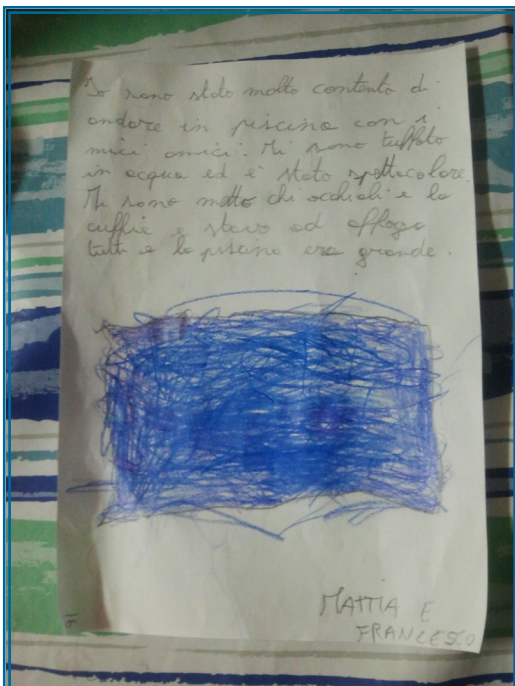 Io sono stato molto contento di
andare in piscina con i
miei amici. Mi sono tuffato
in acqua ed è stato spettacolare.
Mi sono matto chi occhiali e la
cuffie e stavo ad affogo
tutti e la piscina era grande.
MATTIA E
FRANCESCO